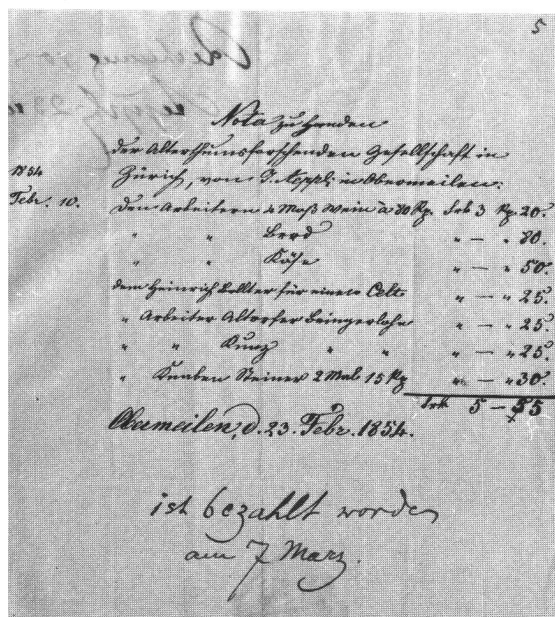 5
Nota zu Handen
der Alterthumsforschenden Gesellschaft in
Zürich, von J. Aeppli in Obermeilen:
1854
Febr. 10. Den Arbeitern 4 Maß Wein à 80 Rp. Frk 3 Rp. 20.
" " Brod " — " 80.
" " Käse " — " 50.
dem Heinrich für einen Celt " — " 25.
" Arbeiter Altorfer Bringerlohn " — " 25.
" " Kunz " " " — " 25.
" Knaben Steiner 2 Mal 15 Rp " — " 30.
Frk 5 — 55
Obermeilen, d. 23. Febr. 1854.
ist bezahlt worden
am 7 Marz.